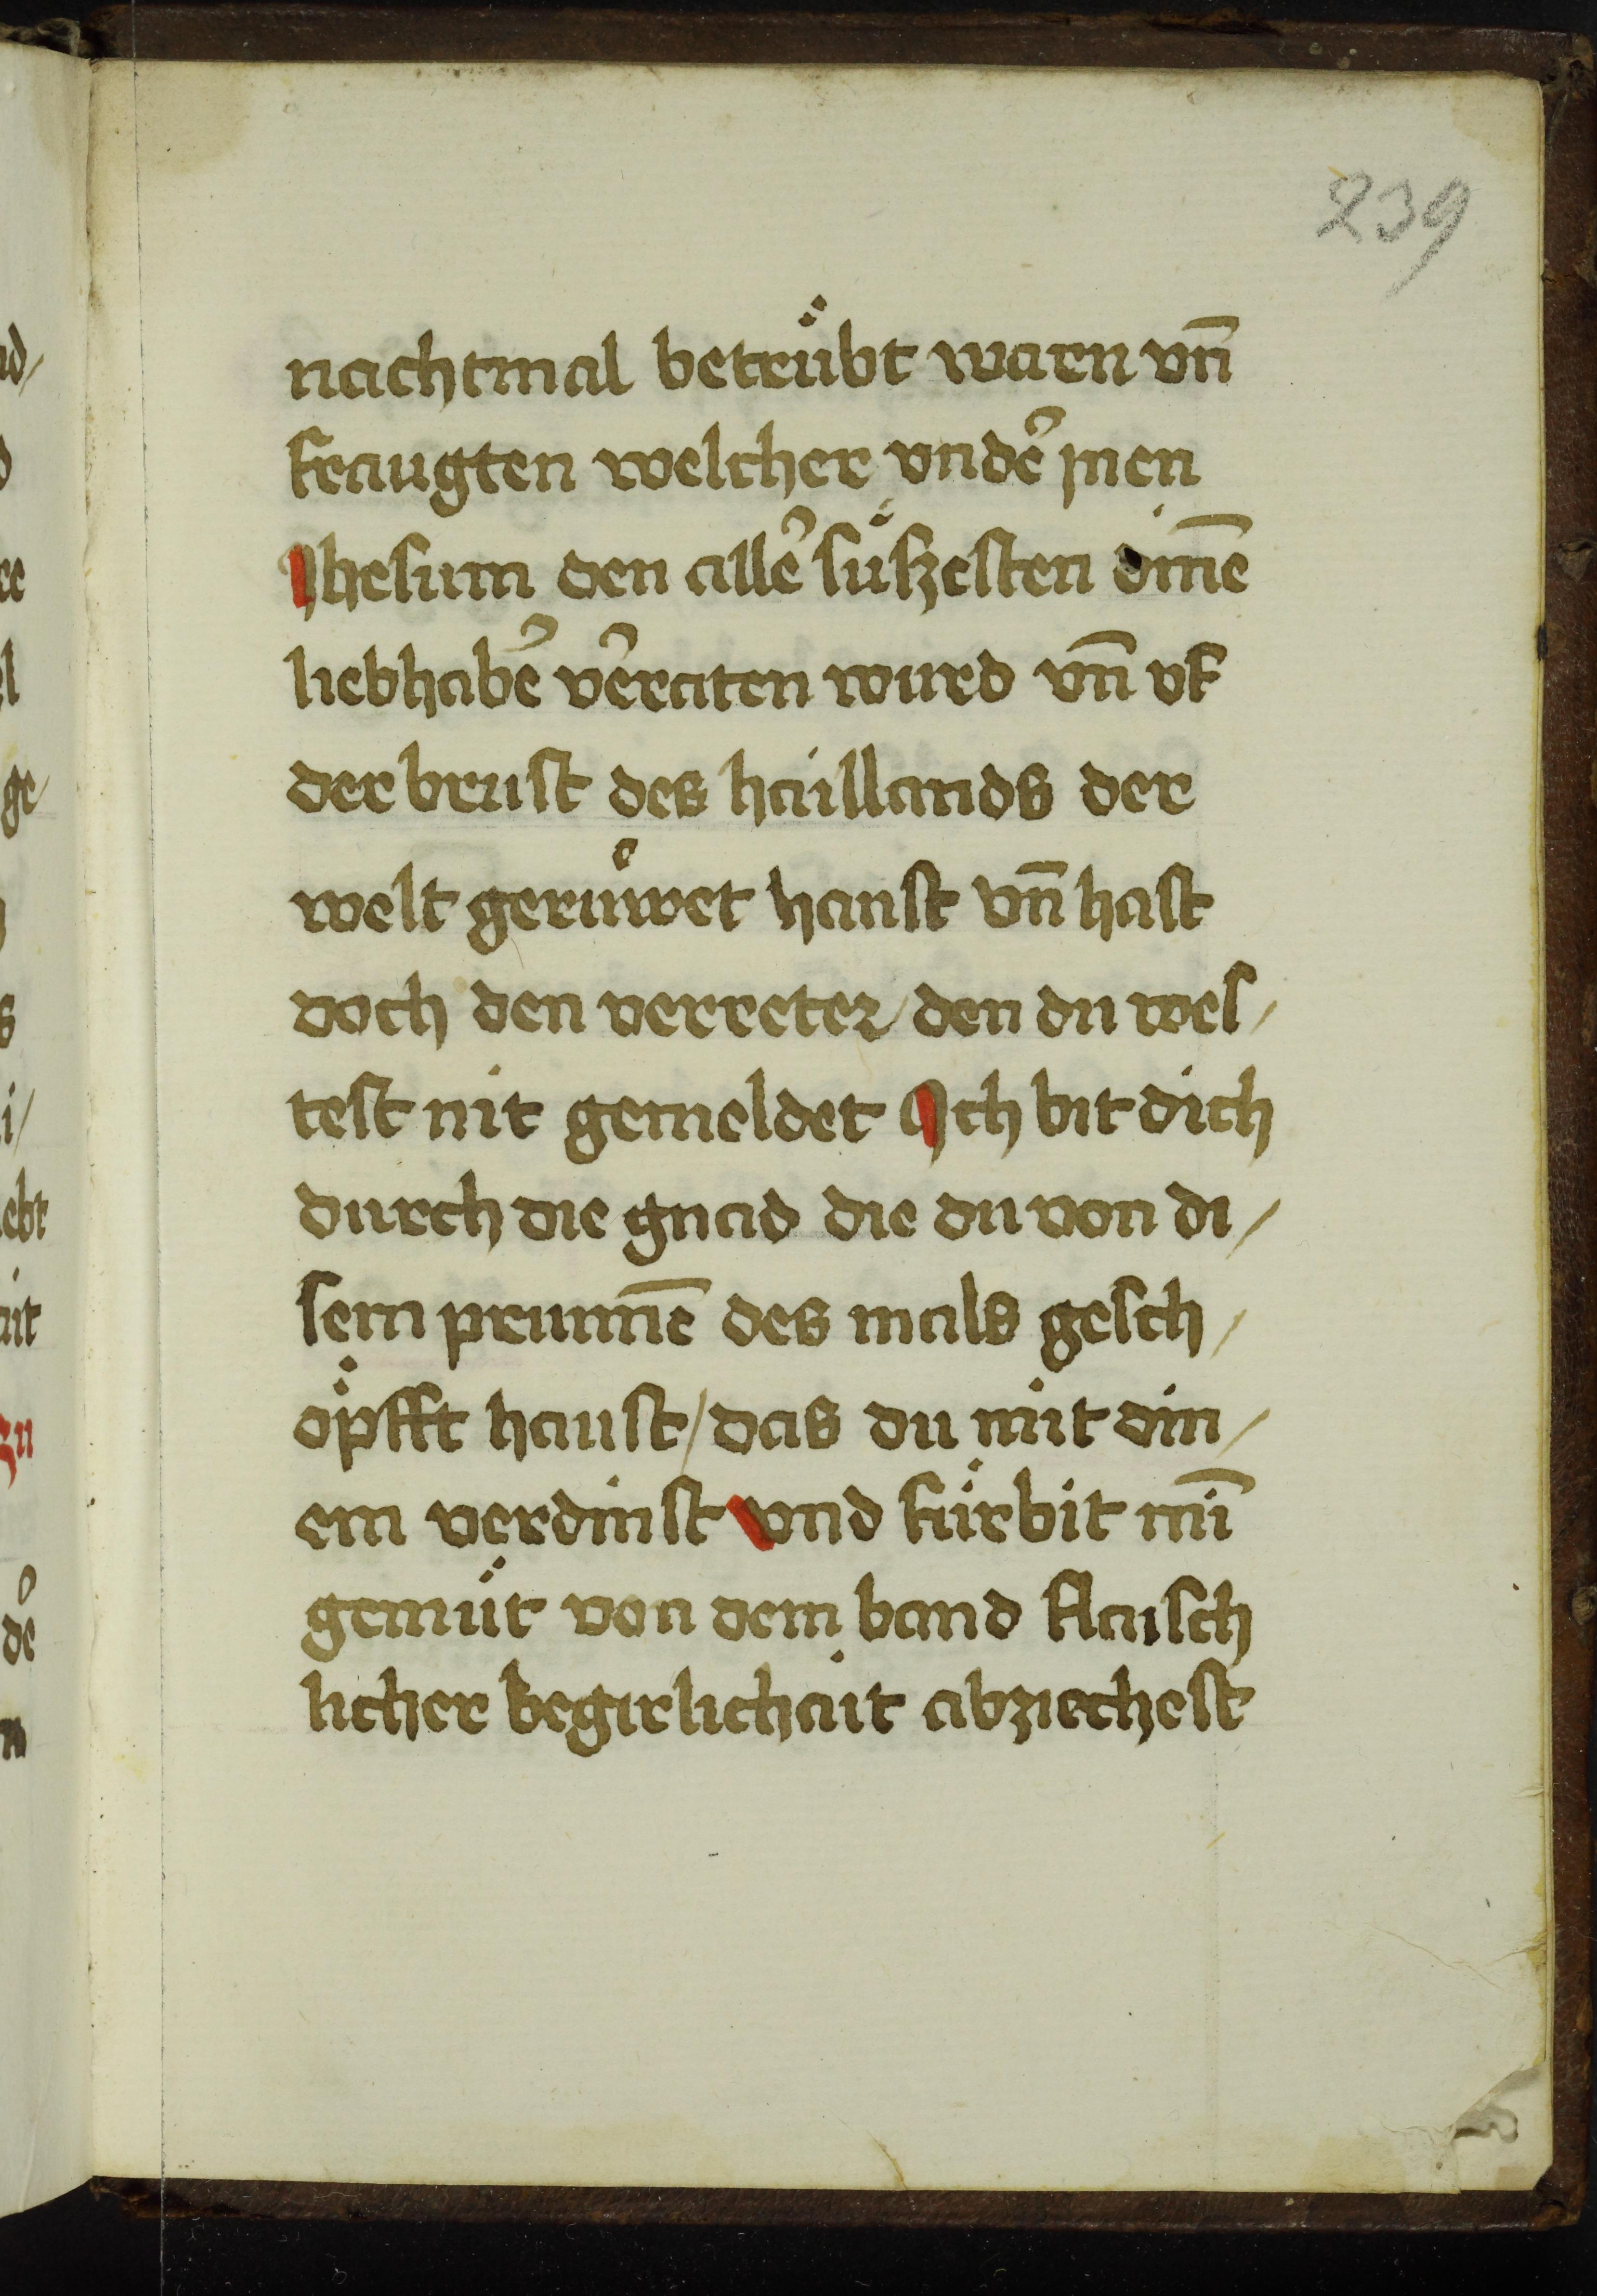 239
nachtmal betrübt waren vn̄
fraugten welcher vnde᷑ jnen
Jhesum den alle᷑ süszesten dinē
liebhabe᷑ ve᷑raten wurd vn̄ vf
der brust des haillands der
welt gerůwet haust vn̄ hast
doch den verreter / den du wes /
test nit gemeldet Ich bit dich
durch die gnad die du von di /
sem prunnē des mals gesch /
öpfft haust / das du mit din /
em verdinst vnd fürbit mī
gemüt von dem band flaisch
licher begirlichait abziechest